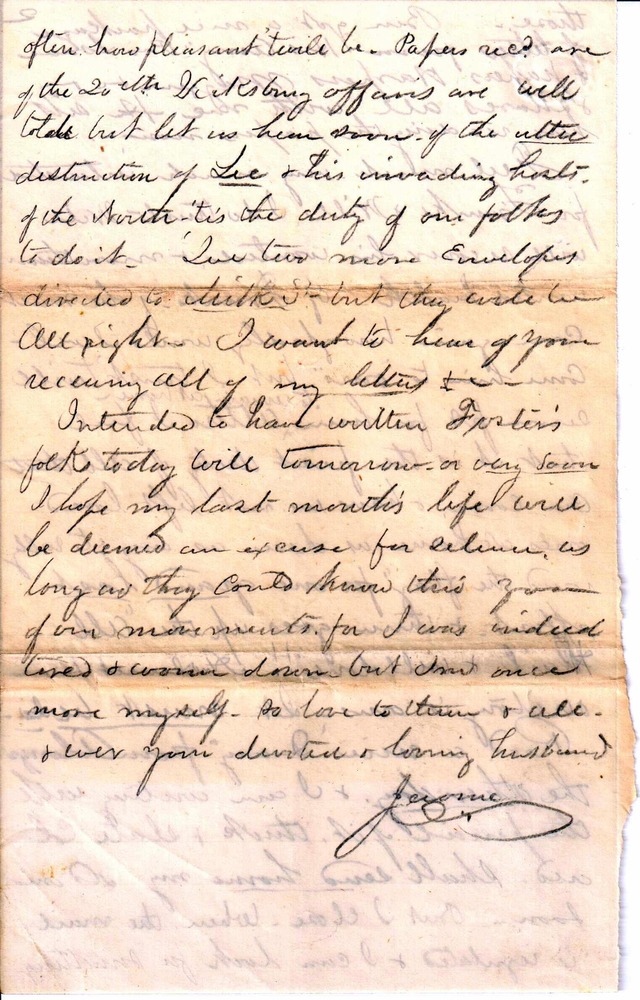 often. how pleasant 'twill be. Papers rec'd are
of the 20th Vicksburg affairs are well
told but let us hear soon of the utter
destruction of Lee & his invading hosts.
of the North. 'tis the duty of our folks
to do it. I've two more Envelopes
directed to Milk St. but they will be
All right. I want to hear of your
receiving all of my letters &c.
Intended to have written Foster's
folks today will tomorrow. or very soon
I hope my last month's life will
be deemed an excuse for silence. as
long as they could know thro you
of our movements. for I was indeed
tired & worn down. but I'm once
more myself. so love to them & all.
& ever your devoted & loving husband
Jerome